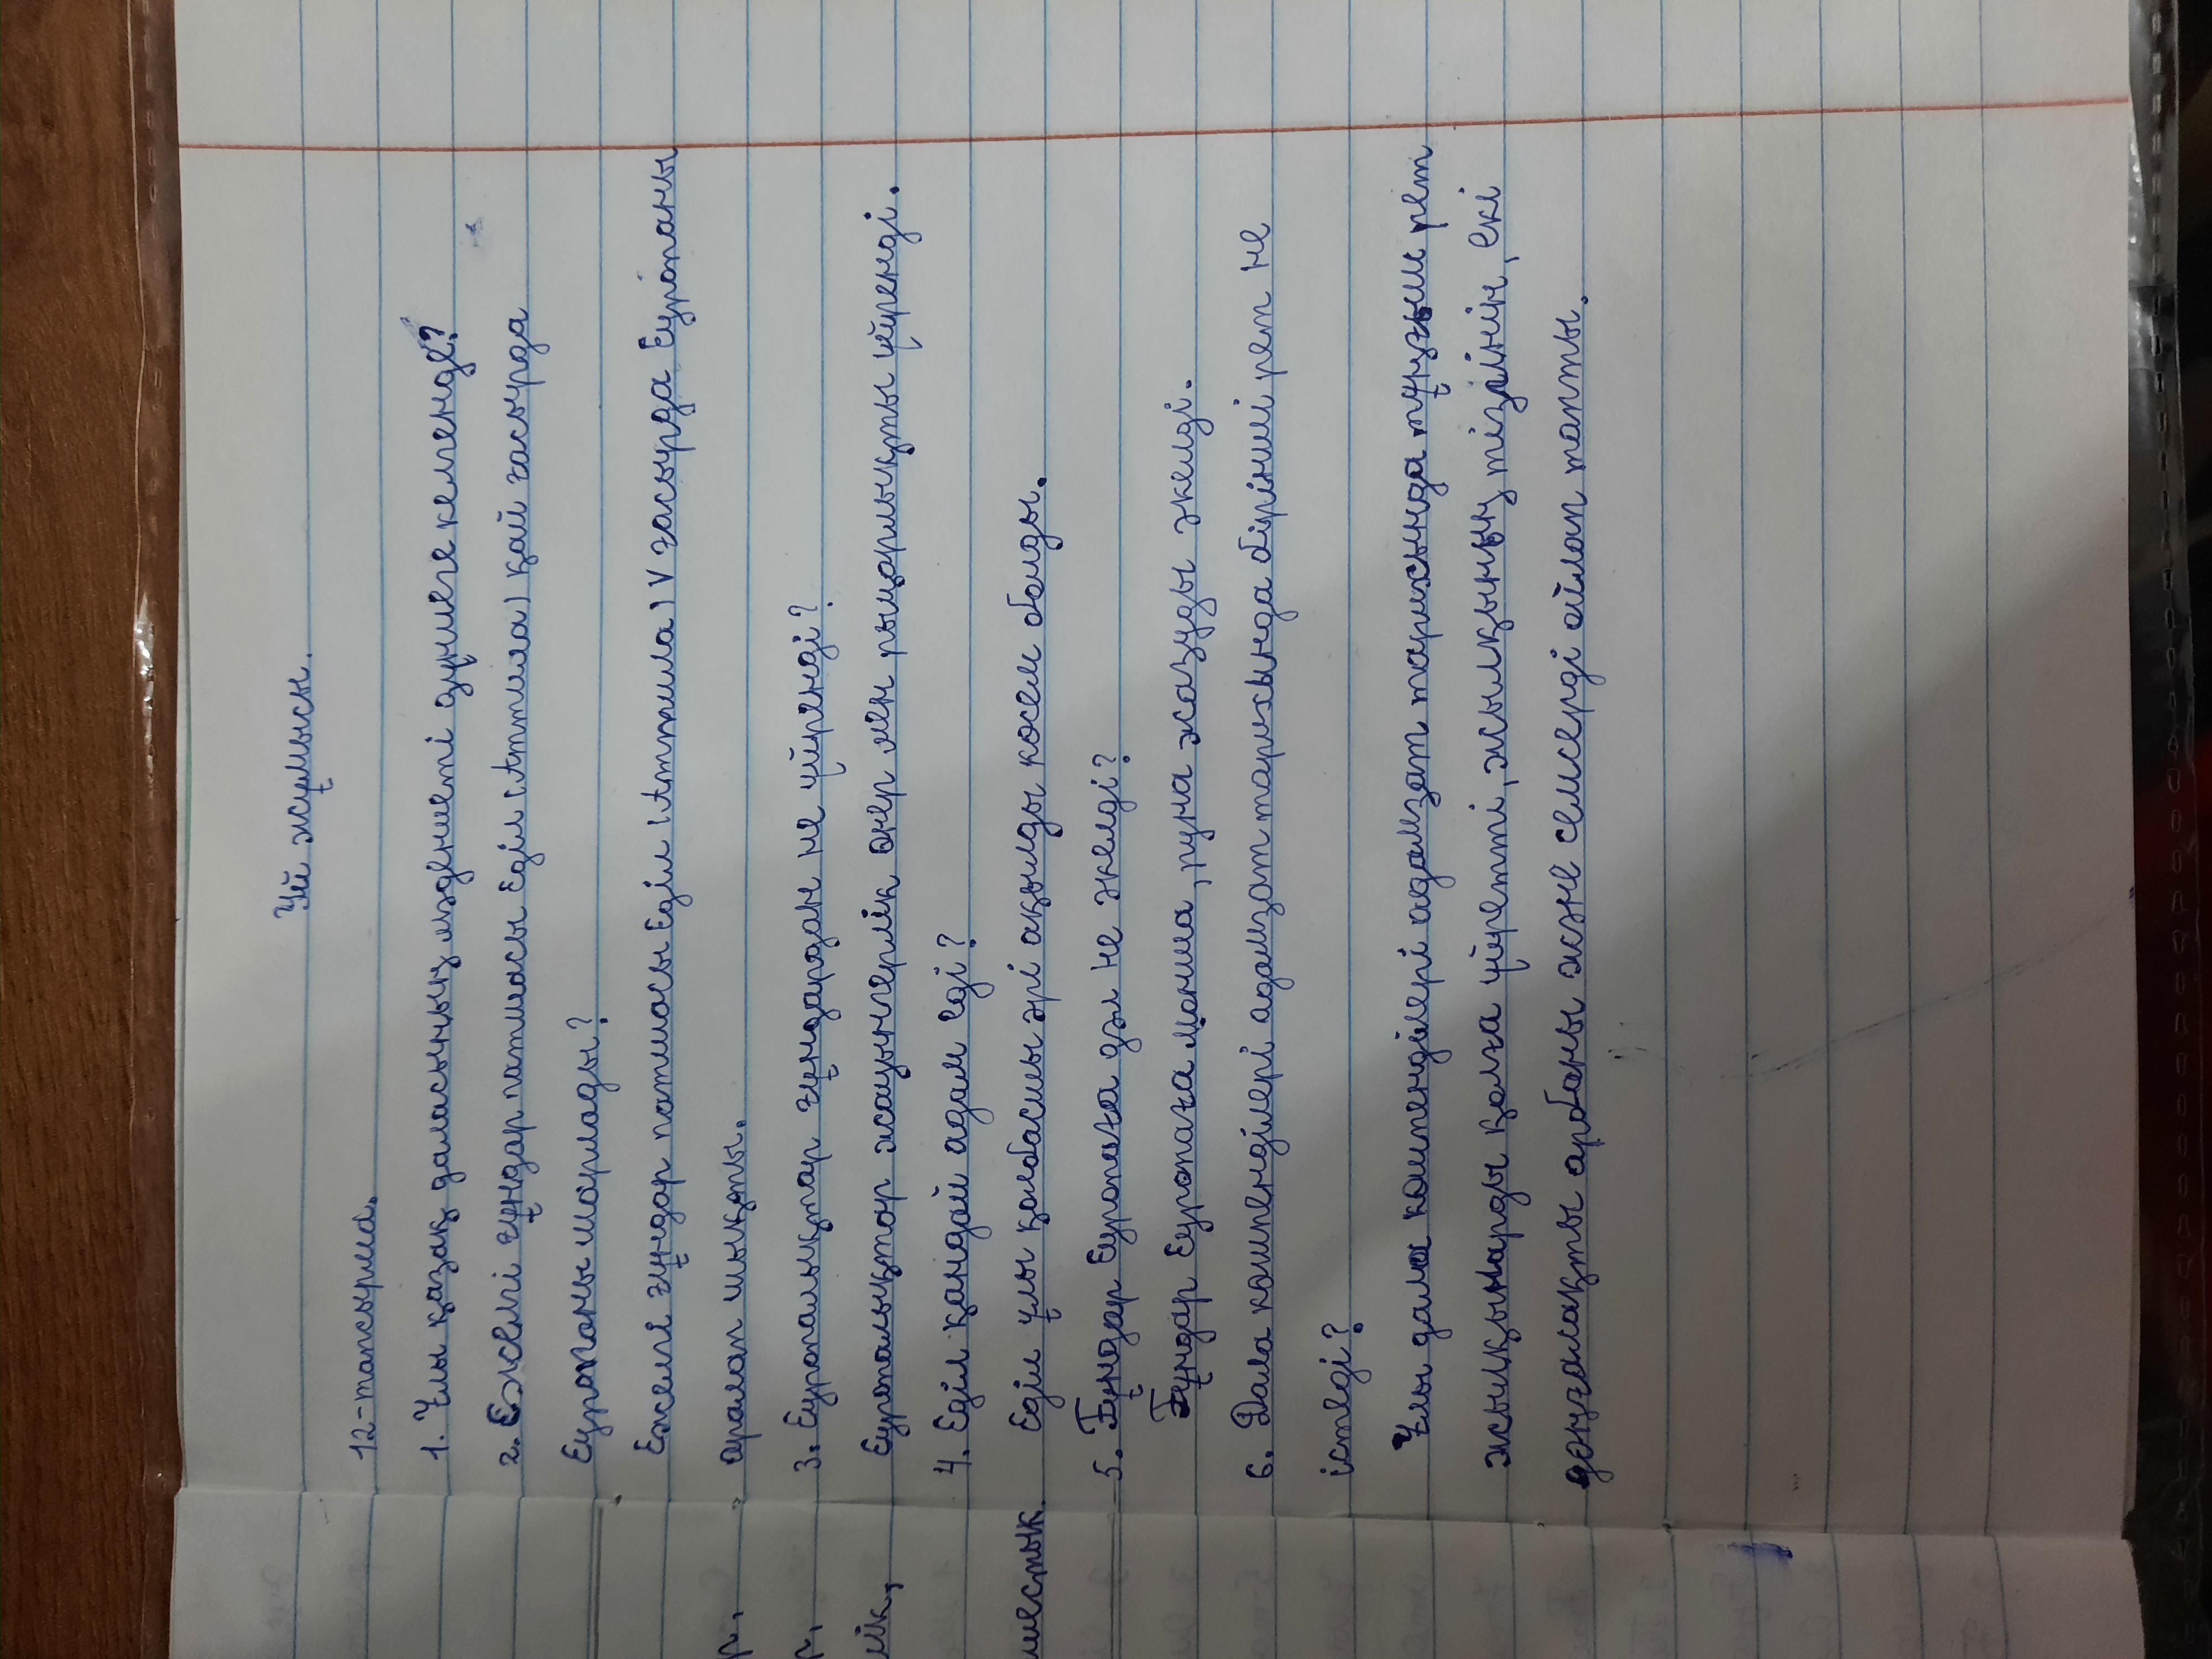 Үй жұмысы.
12-тапсырма.
1. Ұлы қазақ даласының мәдениеті дүниеге келгенде?
2. Ежелгі ғұндар патшасы Еділ (Аттила) қай ғасырда
Еуропаны шарлады?
Ежелгі ғұндар патшасы Еділ (Аттила) V ғасырда Еуропаны
аралап шықты.
3. Еуропалықтар ғұндардан не үйренді?
Еуропалықтар жауынгерлік өнер мен рыцарлықты үйренді.
4. Еділ қандай адам еді?
Еділ ұлы қолбасшы әрі ақылды көсем болды.
5. Ғұндар Еуропаға дәл не әкелді?
Ғұндар Еуропаға монша, руна жазуды әкелді.
6. Дала көшпенділері адамзат тарихында бірінші рет не
істеді?
Ұлы дала көшпенділері адамзат тарихында тұңғыш рет
жылқынарды қолға үйретті, жылқының тізгінін, екі
доңғалақты арбаны және семсерді ойлап тапты.
р,
р,
лік,
шестық.